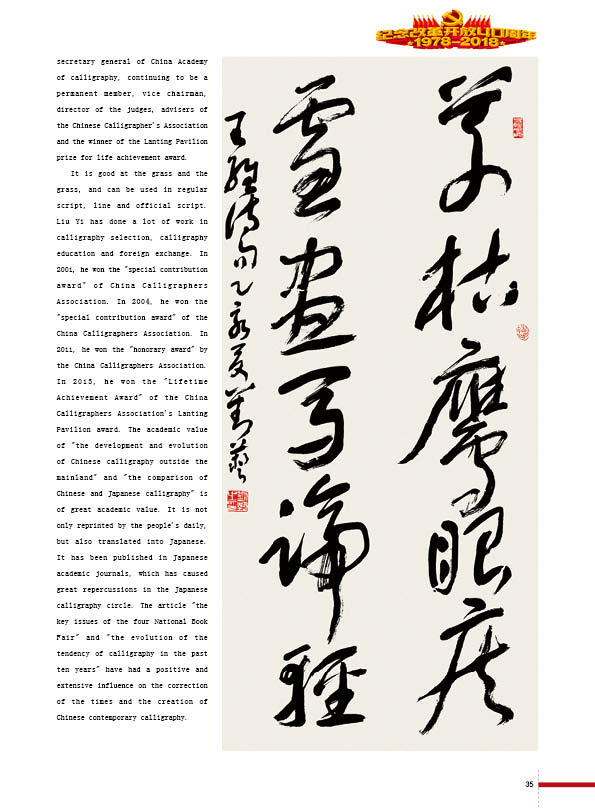 纪念改革开放40周年
1978-2018
secretary general of China Academy
of calligraphy, continuing to be a
permanent member, vice chairman,
director of the judges, advisers of
the Chinese Calligrapher's Association
and the winner of the Lanting Pavilion
prize for life achievement award.
It is good at the grass and the
grass, and can be used in regular
script, line and official script.
Liu Yi has done a lot of work in
calligraphy selection, calligraphy
education and foreign exchange. In
2001, he won the "special contribution
award" of China Calligraphers
Association. In 2004, he won the
"special contribution award" of the
China Calligraphers Association. In
2011, he won the "honorary award" by
the China Calligraphers Association.
In 2013, he won the "Lifetime
Achievement Award" of the China
Calligraphers Association's Lanting
Pavilion award. The academic value
of "the development and evolution
of Chinese calligraphy outside the
mainland" and "the comparison of
Chinese and Japanese calligraphy" is
of great academic value. It is not
only reprinted by the people's daily,
but also translated into Japanese.
It has been published in Japanese
academic journals, which has caused
great repercussions in the Japanese
calligraphy circle. The article "the
key issues of the four National Book
Fair" and "the evolution of the
tendency of calligraphy in the past
ten years" have had a positive and
extensive influence on the correction
of the times and the creation of
Chinese contemporary calligraphy.
草枯鷹眼疾
雪盡馬蹄輕
王維詩句乙亥夏劉藝
35